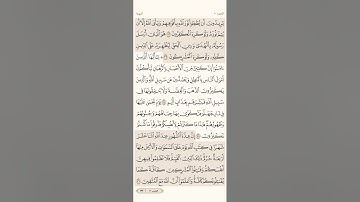 التوبة
يُرِيدُونَ أَن يُطْفِـُٔوا۟ نُورَ ٱللَّهِ بِأَفْوَٰهِهِمْ وَيَأْبَى ٱللَّهُ إِلَّآ أَن
يُتِمَّ نُورَهُۥ وَلَوْ كَرِهَ ٱلْكَٰفِرُونَ ٣٢ هُوَ ٱلَّذِىٓ أَرْسَلَ
رَسُولَهُۥ بِٱلْهُدَىٰ وَدِينِ ٱلْحَقِّ لِيُظْهِرَهُۥ عَلَى ٱلدِّينِ
كُلِّهِۦ وَلَوْ كَرِهَ ٱلْمُشْرِكُونَ ٣٣ ۞ يَٰٓأَيُّهَا ٱلَّذِينَ
ءَامَنُوٓا۟ إِنَّ كَثِيرًا مِّنَ ٱلْأَحْبَارِ وَٱلرُّهْبَانِ لَيَأْكُلُونَ
أَمْوَٰلَ ٱلنَّاسِ بِٱلْبَٰطِلِ وَيَصُدُّونَ عَن سَبِيلِ ٱللَّهِ وَٱلَّذِينَ
يَكْنِزُونَ ٱلذَّهَبَ وَٱلْفِضَّةَ وَلَا يُنفِقُونَهَا فِى
سَبِيلِ ٱللَّهِ فَبَشِّرْهُم بِعَذَابٍ أَلِيمٍ ٣٤ يَوْمَ يُحْمَىٰ عَلَيْهَا
فِى نَارِ جَهَنَّمَ فَتُكْوَىٰ بِهَا جِبَاهُهُمْ وَجُنُوبُهُمْ
وَظُهُورُهُمْ هَٰذَا مَا كَنَزْتُمْ لِأَنفُسِكُمْ فَذُوقُوا۟ مَا كُنتُمْ
تَكْنِزُونَ ٣٥ إِنَّ عِدَّةَ ٱلشُّهُورِ عِندَ ٱللَّهِ ٱثْنَا عَشَرَ
شَهْرًا فِى كِتَٰبِ ٱللَّهِ يَوْمَ خَلَقَ ٱلسَّمَٰوَٰتِ وَٱلْأَرْضَ مِنْهَآ
أَرْبَعَةٌ حُرُمٌ ذَٰلِكَ ٱلدِّينُ ٱلْقَيِّمُ فَلَا تَظْلِمُوا۟ فِيهِنَّ
أَنفُسَكُمْ وَقَٰتِلُوا۟ ٱلْمُشْرِكِينَ كَآفَّةً كَمَا
يُقَٰتِلُونَكُمْ كَآفَّةً وَٱعْلَمُوٓا۟ أَنَّ ٱللَّهَ مَعَ ٱلْمُتَّقِينَ ٣٦